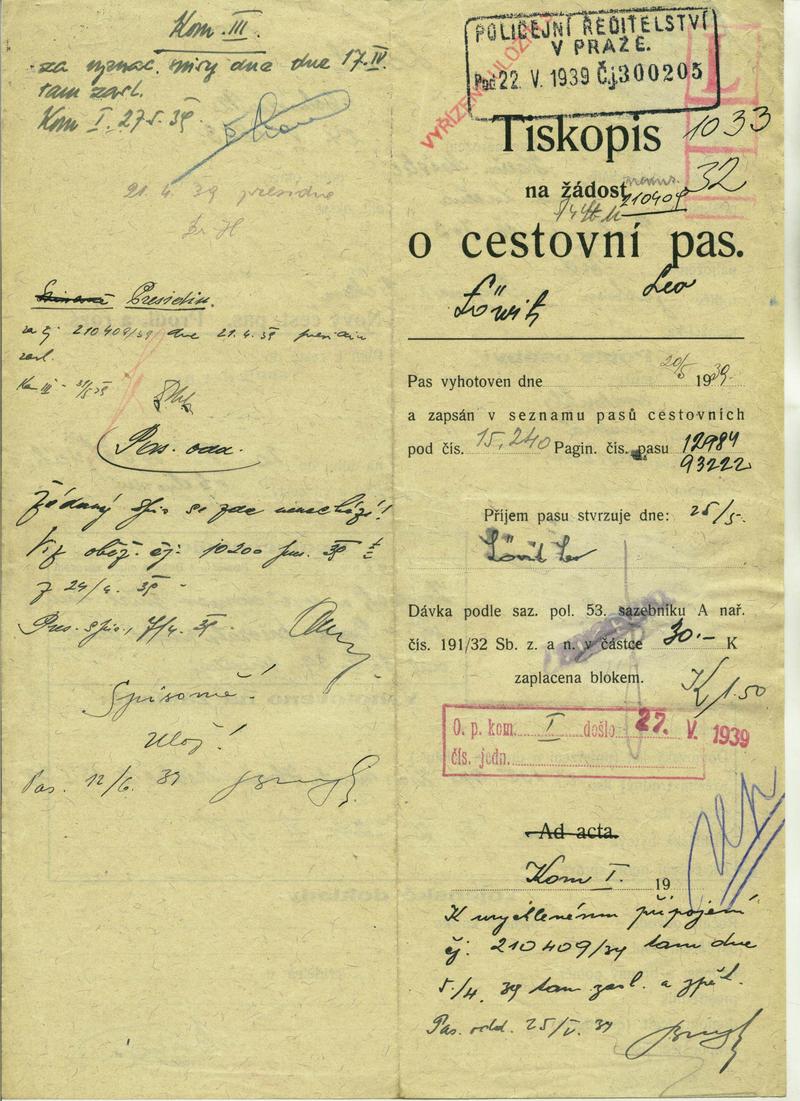 Kom. III.
dne 17. IV.
tam zasl.
Kom I. 27.5.39.
21. 4. 39 presidine
Dr H
Presidiu.
za čj 210409/39 dne 21. 4. 39 presidiu
zasl.
Kom III
Pas. odd.
Žádaný spis se zde nenachází!
Viz oběž. čj: 10200 pres. 39
z 24/4. 39 -
Pres. spis.,
Spisovně!
Ulož!
Pas. 12/6. 39
POLICEJNÍ ŘEDITELSTVÍ
V PRAZE.
22. V. 1939 Čj 300205
L
1033
32
Tiskopis
na žádost
210409
o cestovní pas.
Löwit Leo
Pas vyhotoven dne 20/5 1939.
a zapsán v seznamu pasů cestovních
pod čís. 15,240 Pagin. čís. pasu 12984
93222
Příjem pasu stvrzuje dne: 25/5.
Löwit Leo
Dávka podle saz. pol. 53. sazebníku A nař.
čís. 191/32 Sb. z. a n. v částce 30.- K
zaplacena blokem.
K 1.50
O. p. kom. I došlo 27. V. 1939
čís. jedn.
Ad acta.
Kom I. 19
K urychlenému připojení
čj. 210409/39 tam dne
5./4. 39 tam zasl. a zpět.
Pas. odd. 25/V. 39